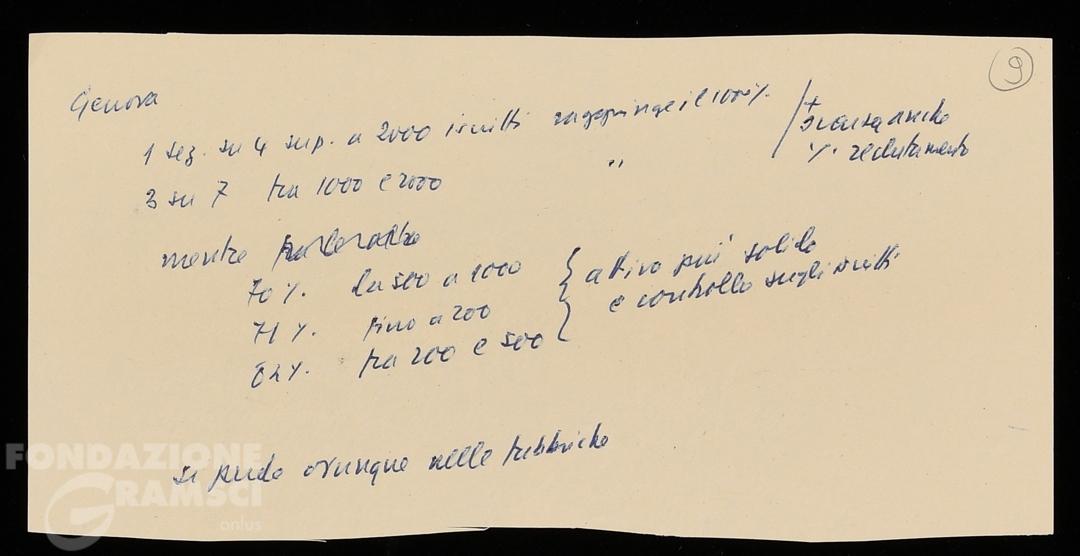 9
Genova
1 sez. su 4 sup. a 2000 iscritti raggiunge il 100%.
+ scarsa anche
3 su 7 tra 1000 e 2000 "
%. reclutamento
mentre
70%. da 500 a 1000
attivo più solido
71%. fino a 200
e controllo sugli iscritti
62%. tra 200 e 500
si perde ovunque nelle fabbriche
FONDAZIONE
GRAMSCI
onlus